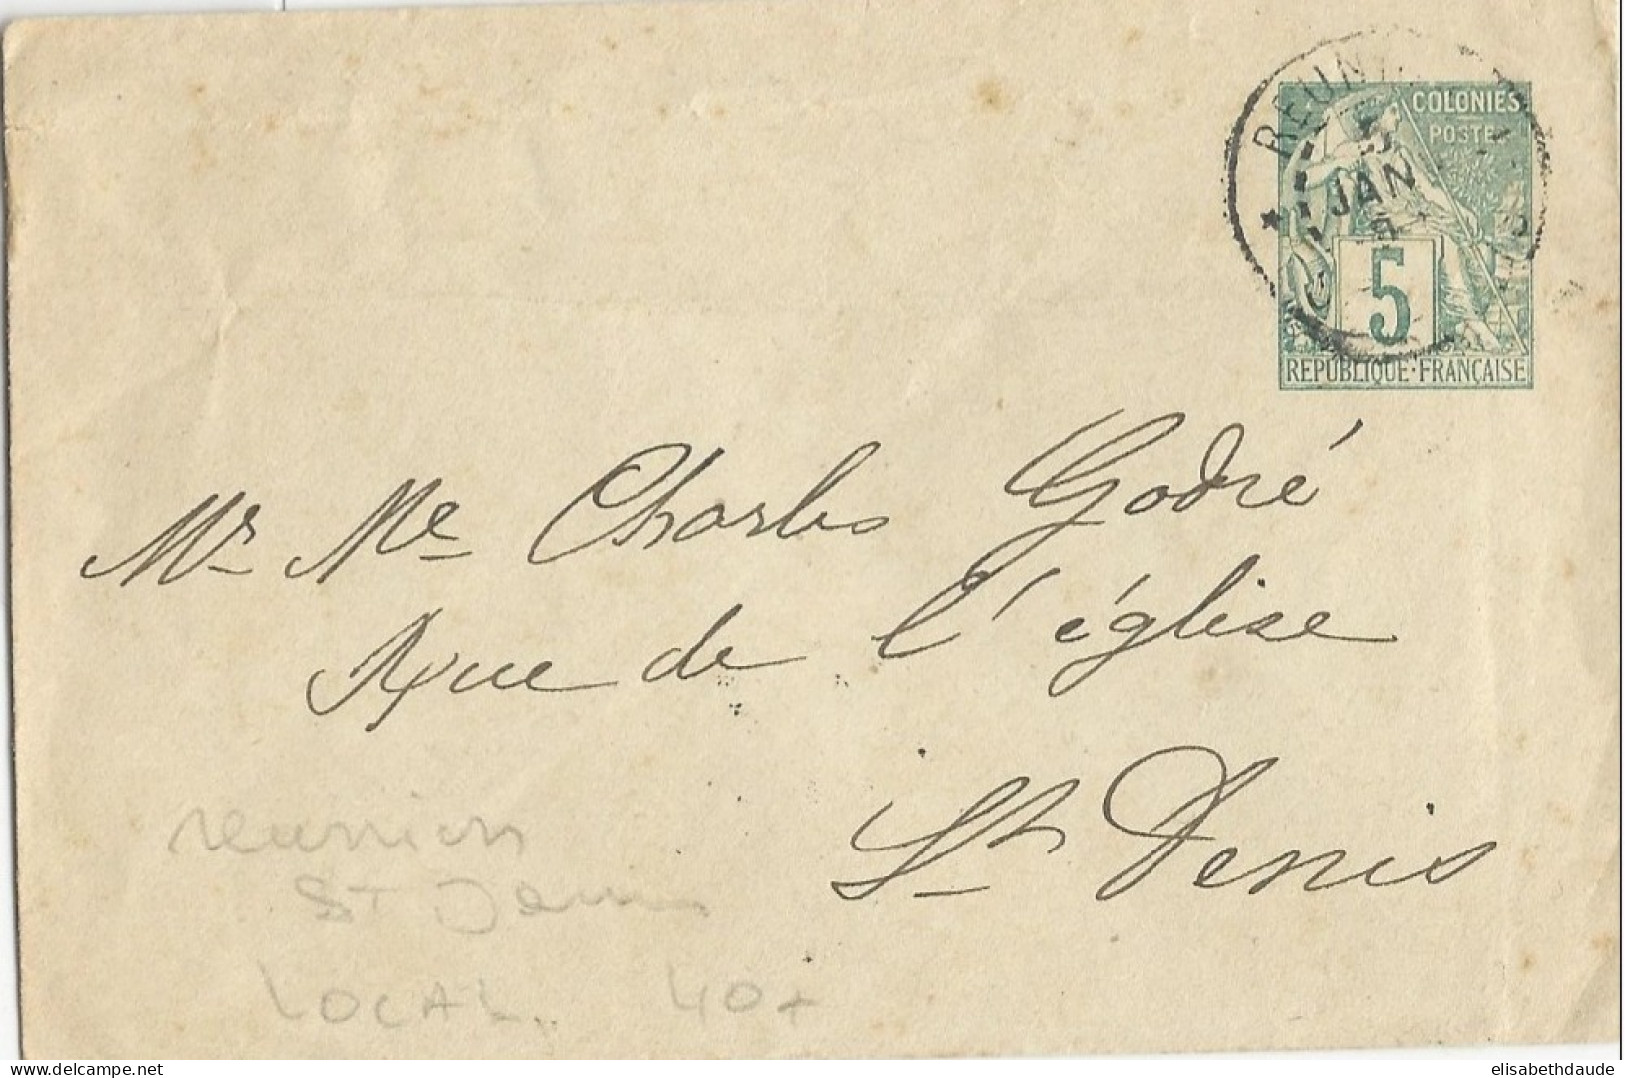 REUNI
5
JAN
COLONIES
POSTE
5
REPUBLIQUE·FRANÇAISE
Mr Me Charles Godré
Rue de l'église
St Denis
reunion
ST Denis
LOCAL. 40+
delcampe.net
elisabethdaude